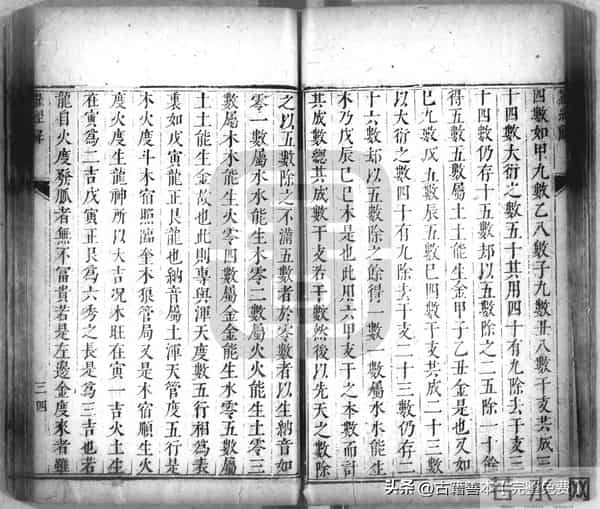 四數如甲九數乙八數子九數丑八數干支共成三
十四數大衍之數五十其用四十有九除去干支三
十四數仍存十五數却以五數除之二五除一十餘
得五數五數屬土土能生金甲子乙丑金是也又如
巳九數戊五數辰五數巳四數干支共成二十三數
以大衍之數四十有九除去干支二十三數仍存二
十六數却以五數除之餘得一數一數屬水水能生
木乃戊辰己巳木是也此用六甲干支之本數而計
其成數總其成數干支若干數然後以先天之數除
之以五數除之不滿五數者於零數者以生納音如
零一數屬水水能生木零二數屬火火能生土零三
數屬木木能生火零四數屬金金能生水零五數屬
土土能生金故也此則專與渾天度數五行相爲表
裏如戊寅龍正艮龍也納音屬土渾天管度五行是
木火度斗木宿照臨奎木狼管局又是木宿順生火
度火度生龍神所以大吉况木旺在寅一吉火土生
在寅爲二吉戊寅正艮爲六秀之長是爲三吉也若
龍自火度發脈者無不冨貴若是左邊金度來者雖
三四
头条 @古籍善本